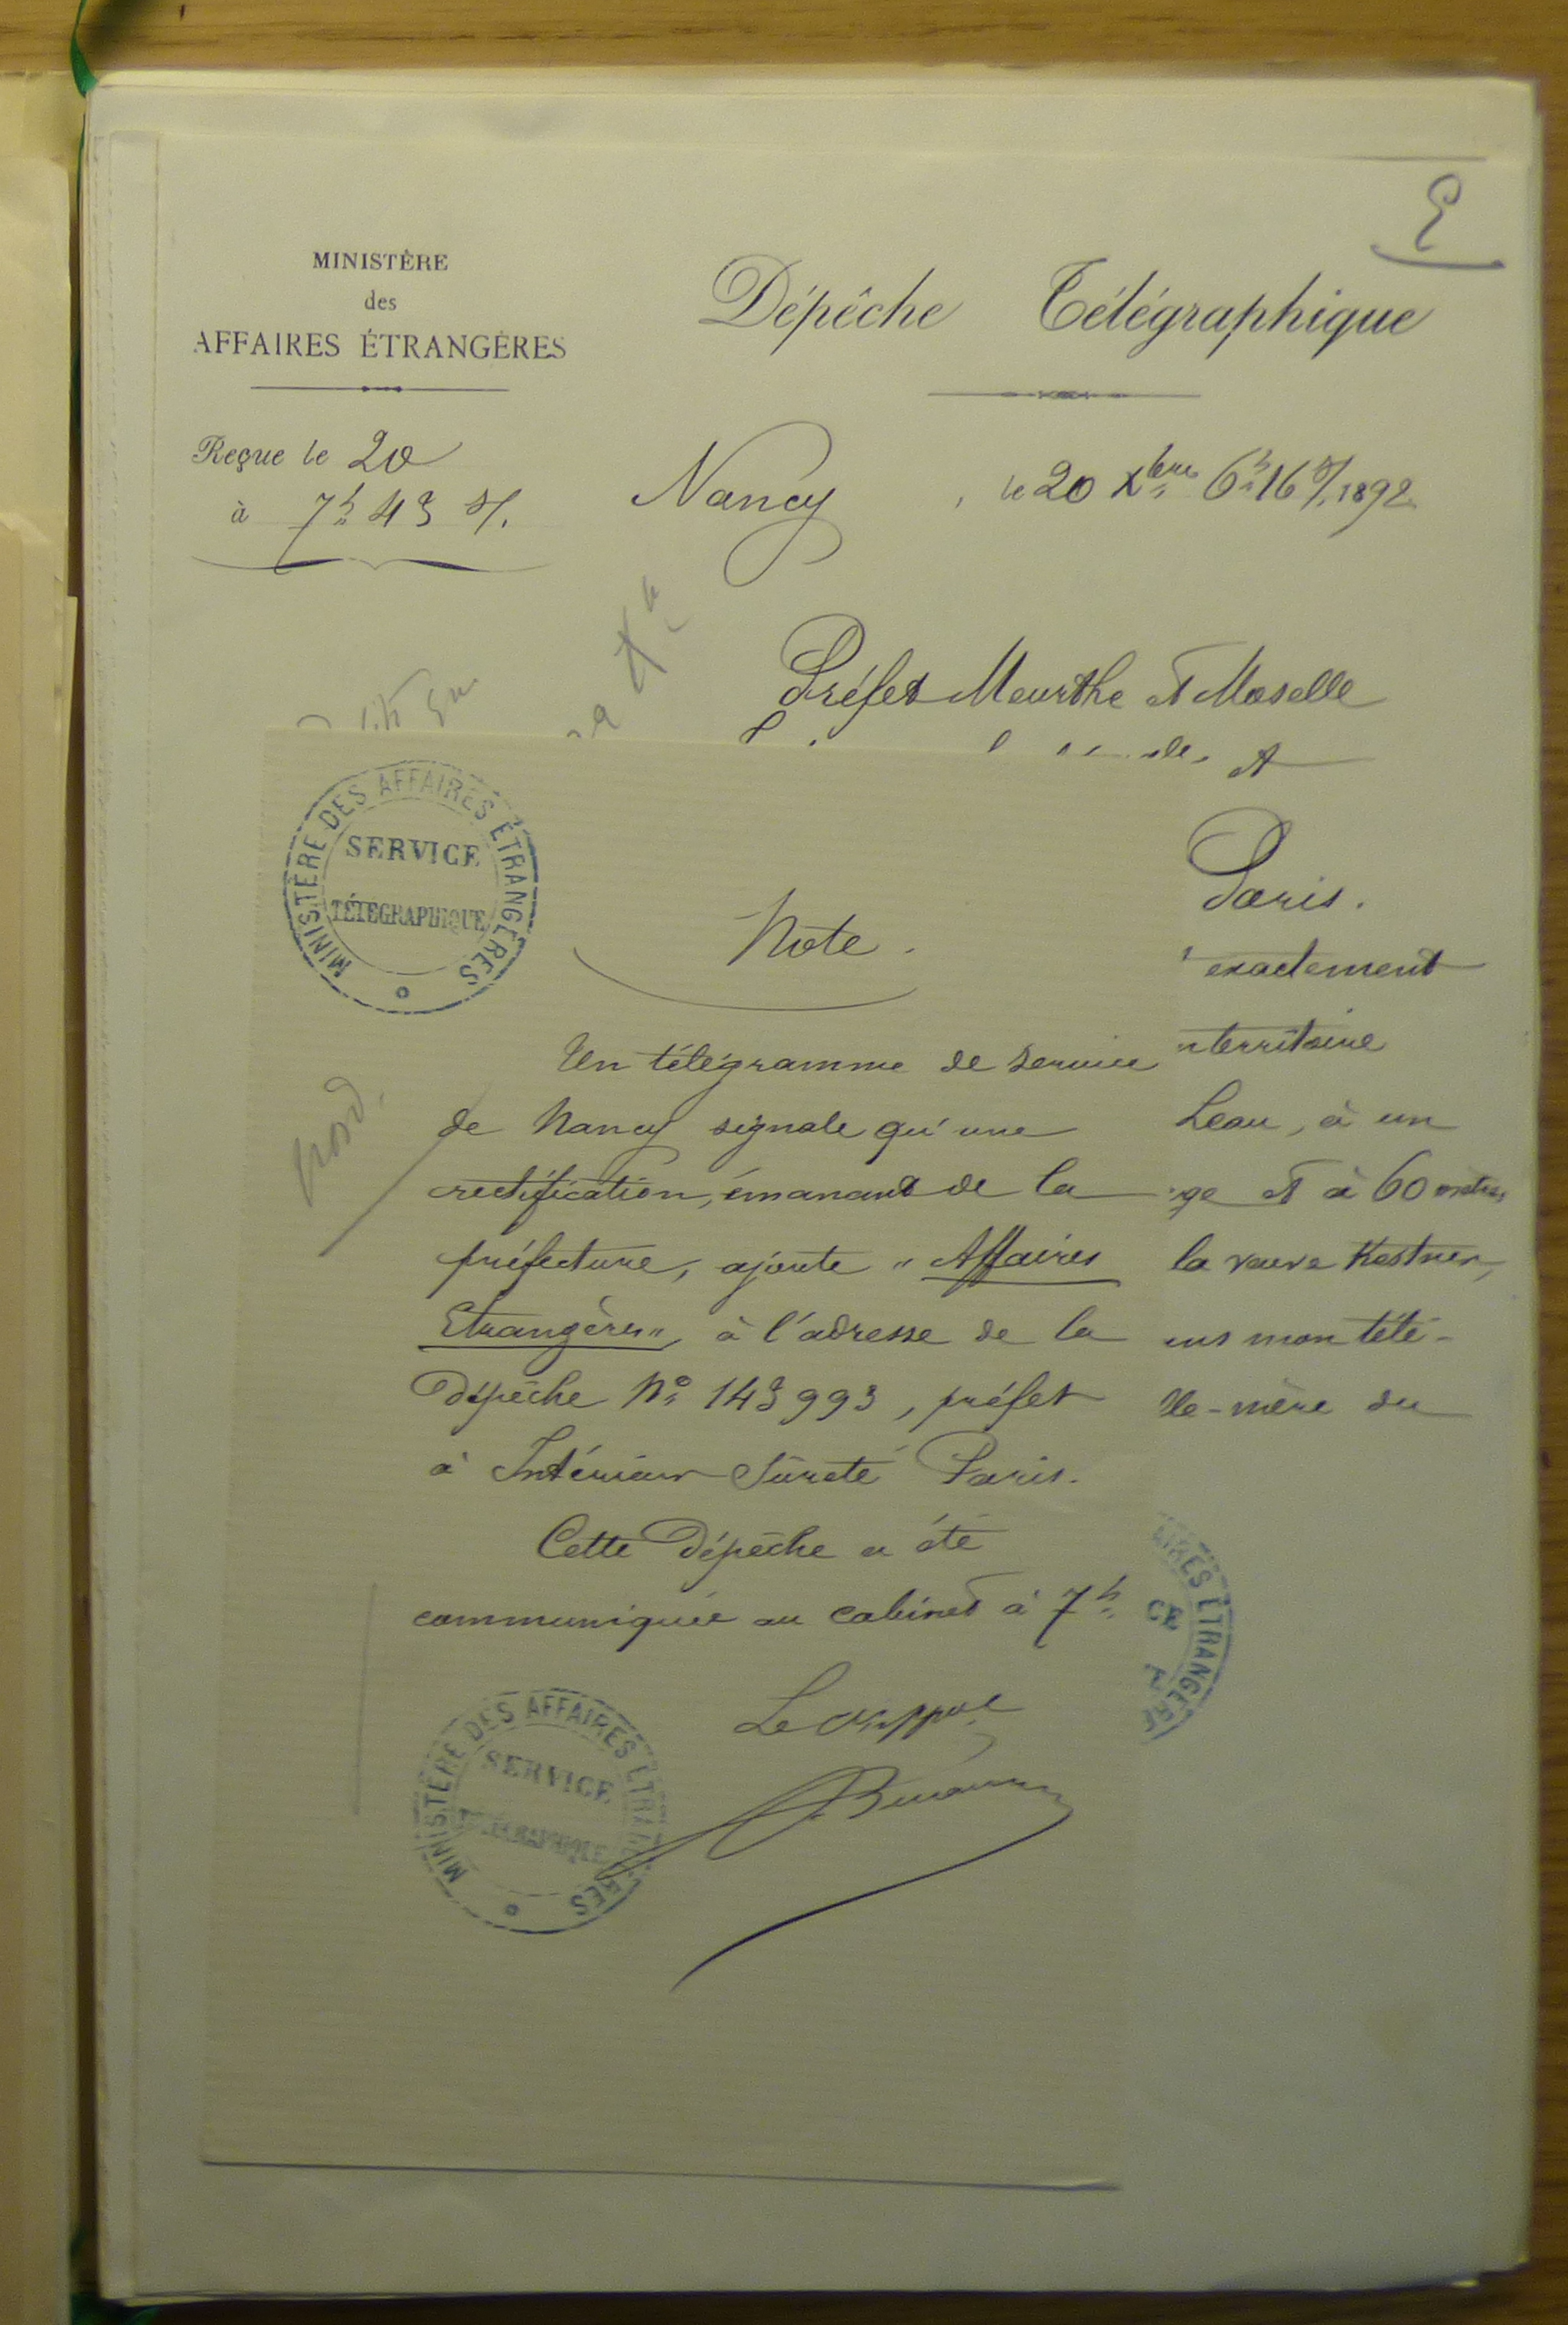 MINISTÈRE
des
AFFAIRES ÉTRANGÈRES
Dépêche Télégraphique
Reçue le 20
à 7h 43 S/.
Nancy, le 20 Xbre 6h 16 S/. 1892
Préfet Meurthe et Moselle
et
Paris.
MINISTÈRE DES AFFAIRES ÉTRANGÈRES
SERVICE
TÉLÉGRAPHIQUE
Note.
exactement
territoire
Un télégramme de service
de Nancy signale qu'une
Leau, à un
rectification, émanant de la
ge et à 60 mètres
préfecture, ajoute "Affaires
la veuve Kestner,
Etrangères", à l'adresse de la
ns mon télé-
Dépêche No 143993, préfet
lle-mère du
à Intérieur Sûreté Paris.
Cette Dépêche a été
communiquée au cabinet à 7h
AIRES ÉTRANGÈR
CE
Le
MINISTÈRE DES AFFAIRES ÉTRANGÈRES
SERVICE
TÉLÉGRAPHIQUE